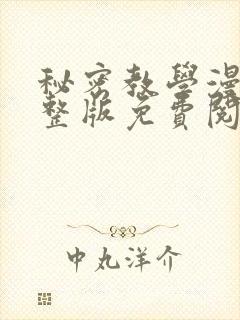 秘密教學漫
整版免費閱
中丸洋介